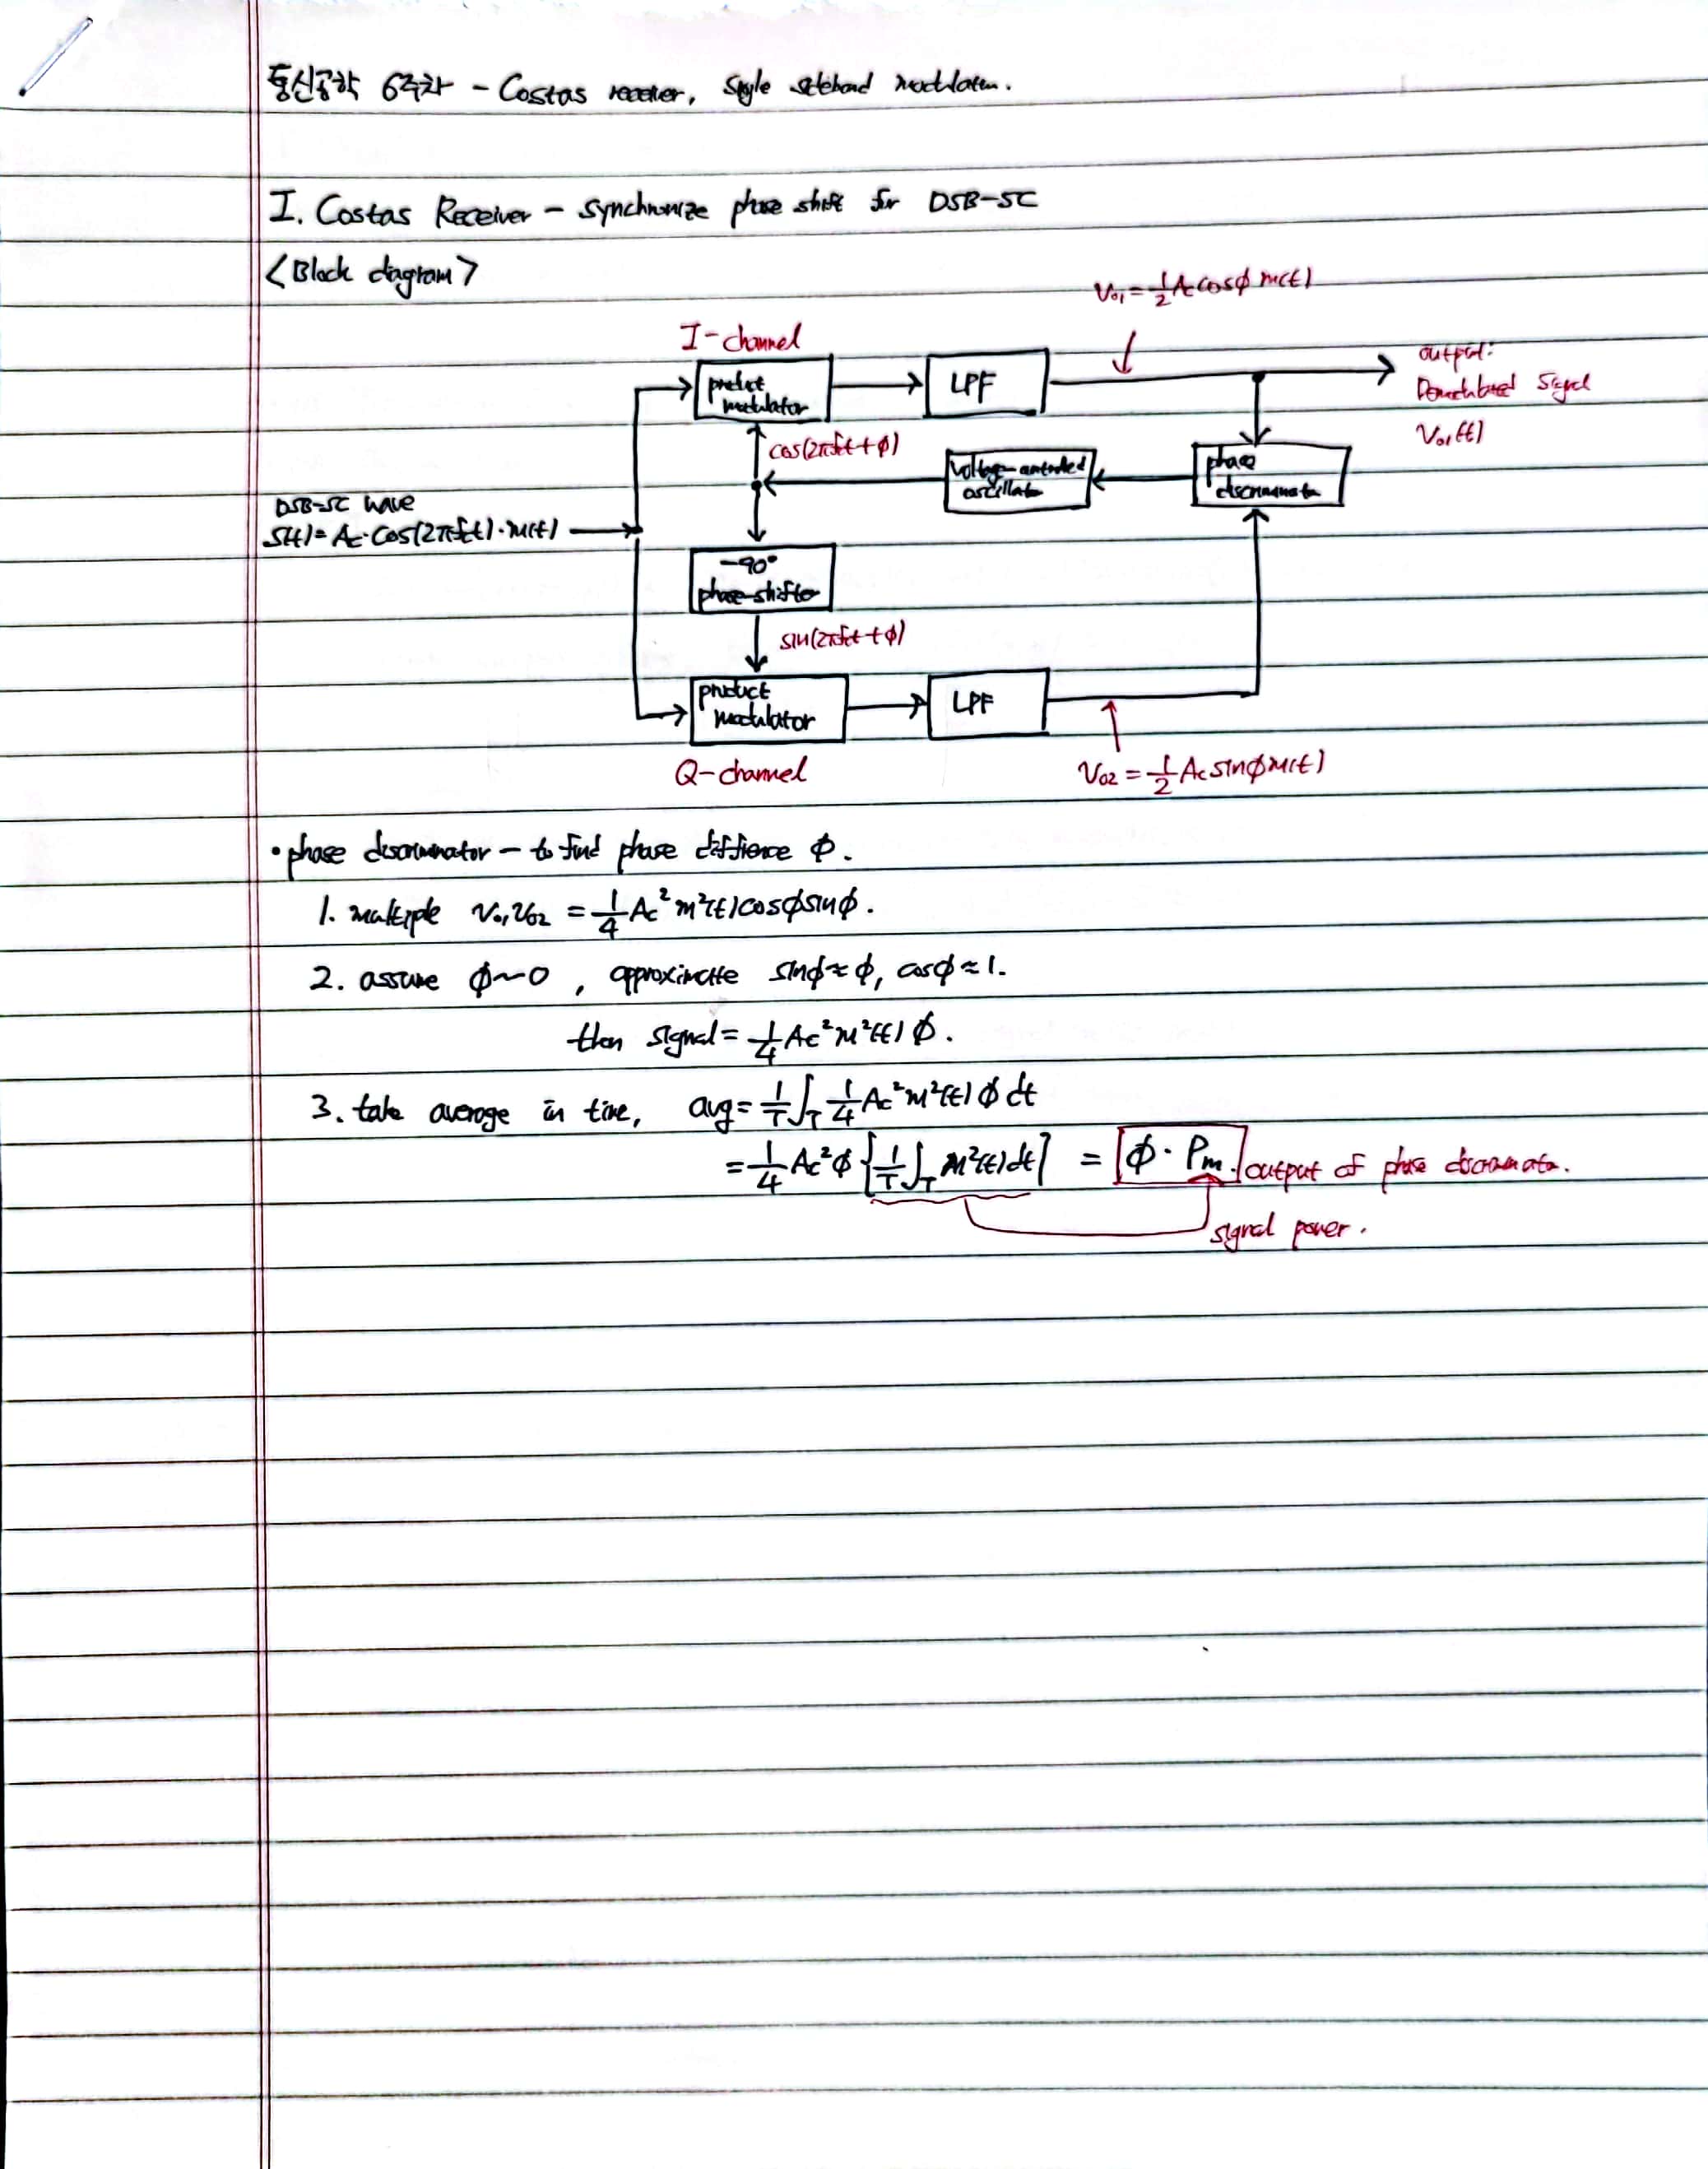 통신공학 6주차 - Costas receiver, Single sideband modulation.
I. Costas Receiver - synchronize phase shift for DSB-SC
<Block diagram>
V₀₁ = 1/2 Ac cosϕ m(t)
I-channel
product modulator
LPF
output:
Demodulated Signal
V₀₁(t)
cos(2πfct + ϕ)
voltage-controlled oscillator
phase discriminator
DSB-SC wave
S(t) = Ac·cos(2πfct)·m(t)
-90°
phase-shifter
sin(2πfct + ϕ)
product modulator
LPF
Q-channel
V₀₂ = 1/2 Ac sinϕ m(t)
• phase discriminator - to find phase diffience ϕ.
1. multiple V₀₁V₀₂ = 1/4 Ac² m²(t) cosϕ sinϕ.
2. assume ϕ~0, approximate sinϕ ≈ ϕ, cosϕ ≈ 1.
then signal = 1/4 Ac² m²(t) ϕ.
3. take average in time, avg = 1/T ∫_T 1/4 Ac² m²(t) ϕ dt
= 1/4 Ac² ϕ [1/T ∫_T m²(t) dt] = ϕ · Pm. output of phase discriminator.
signal power.